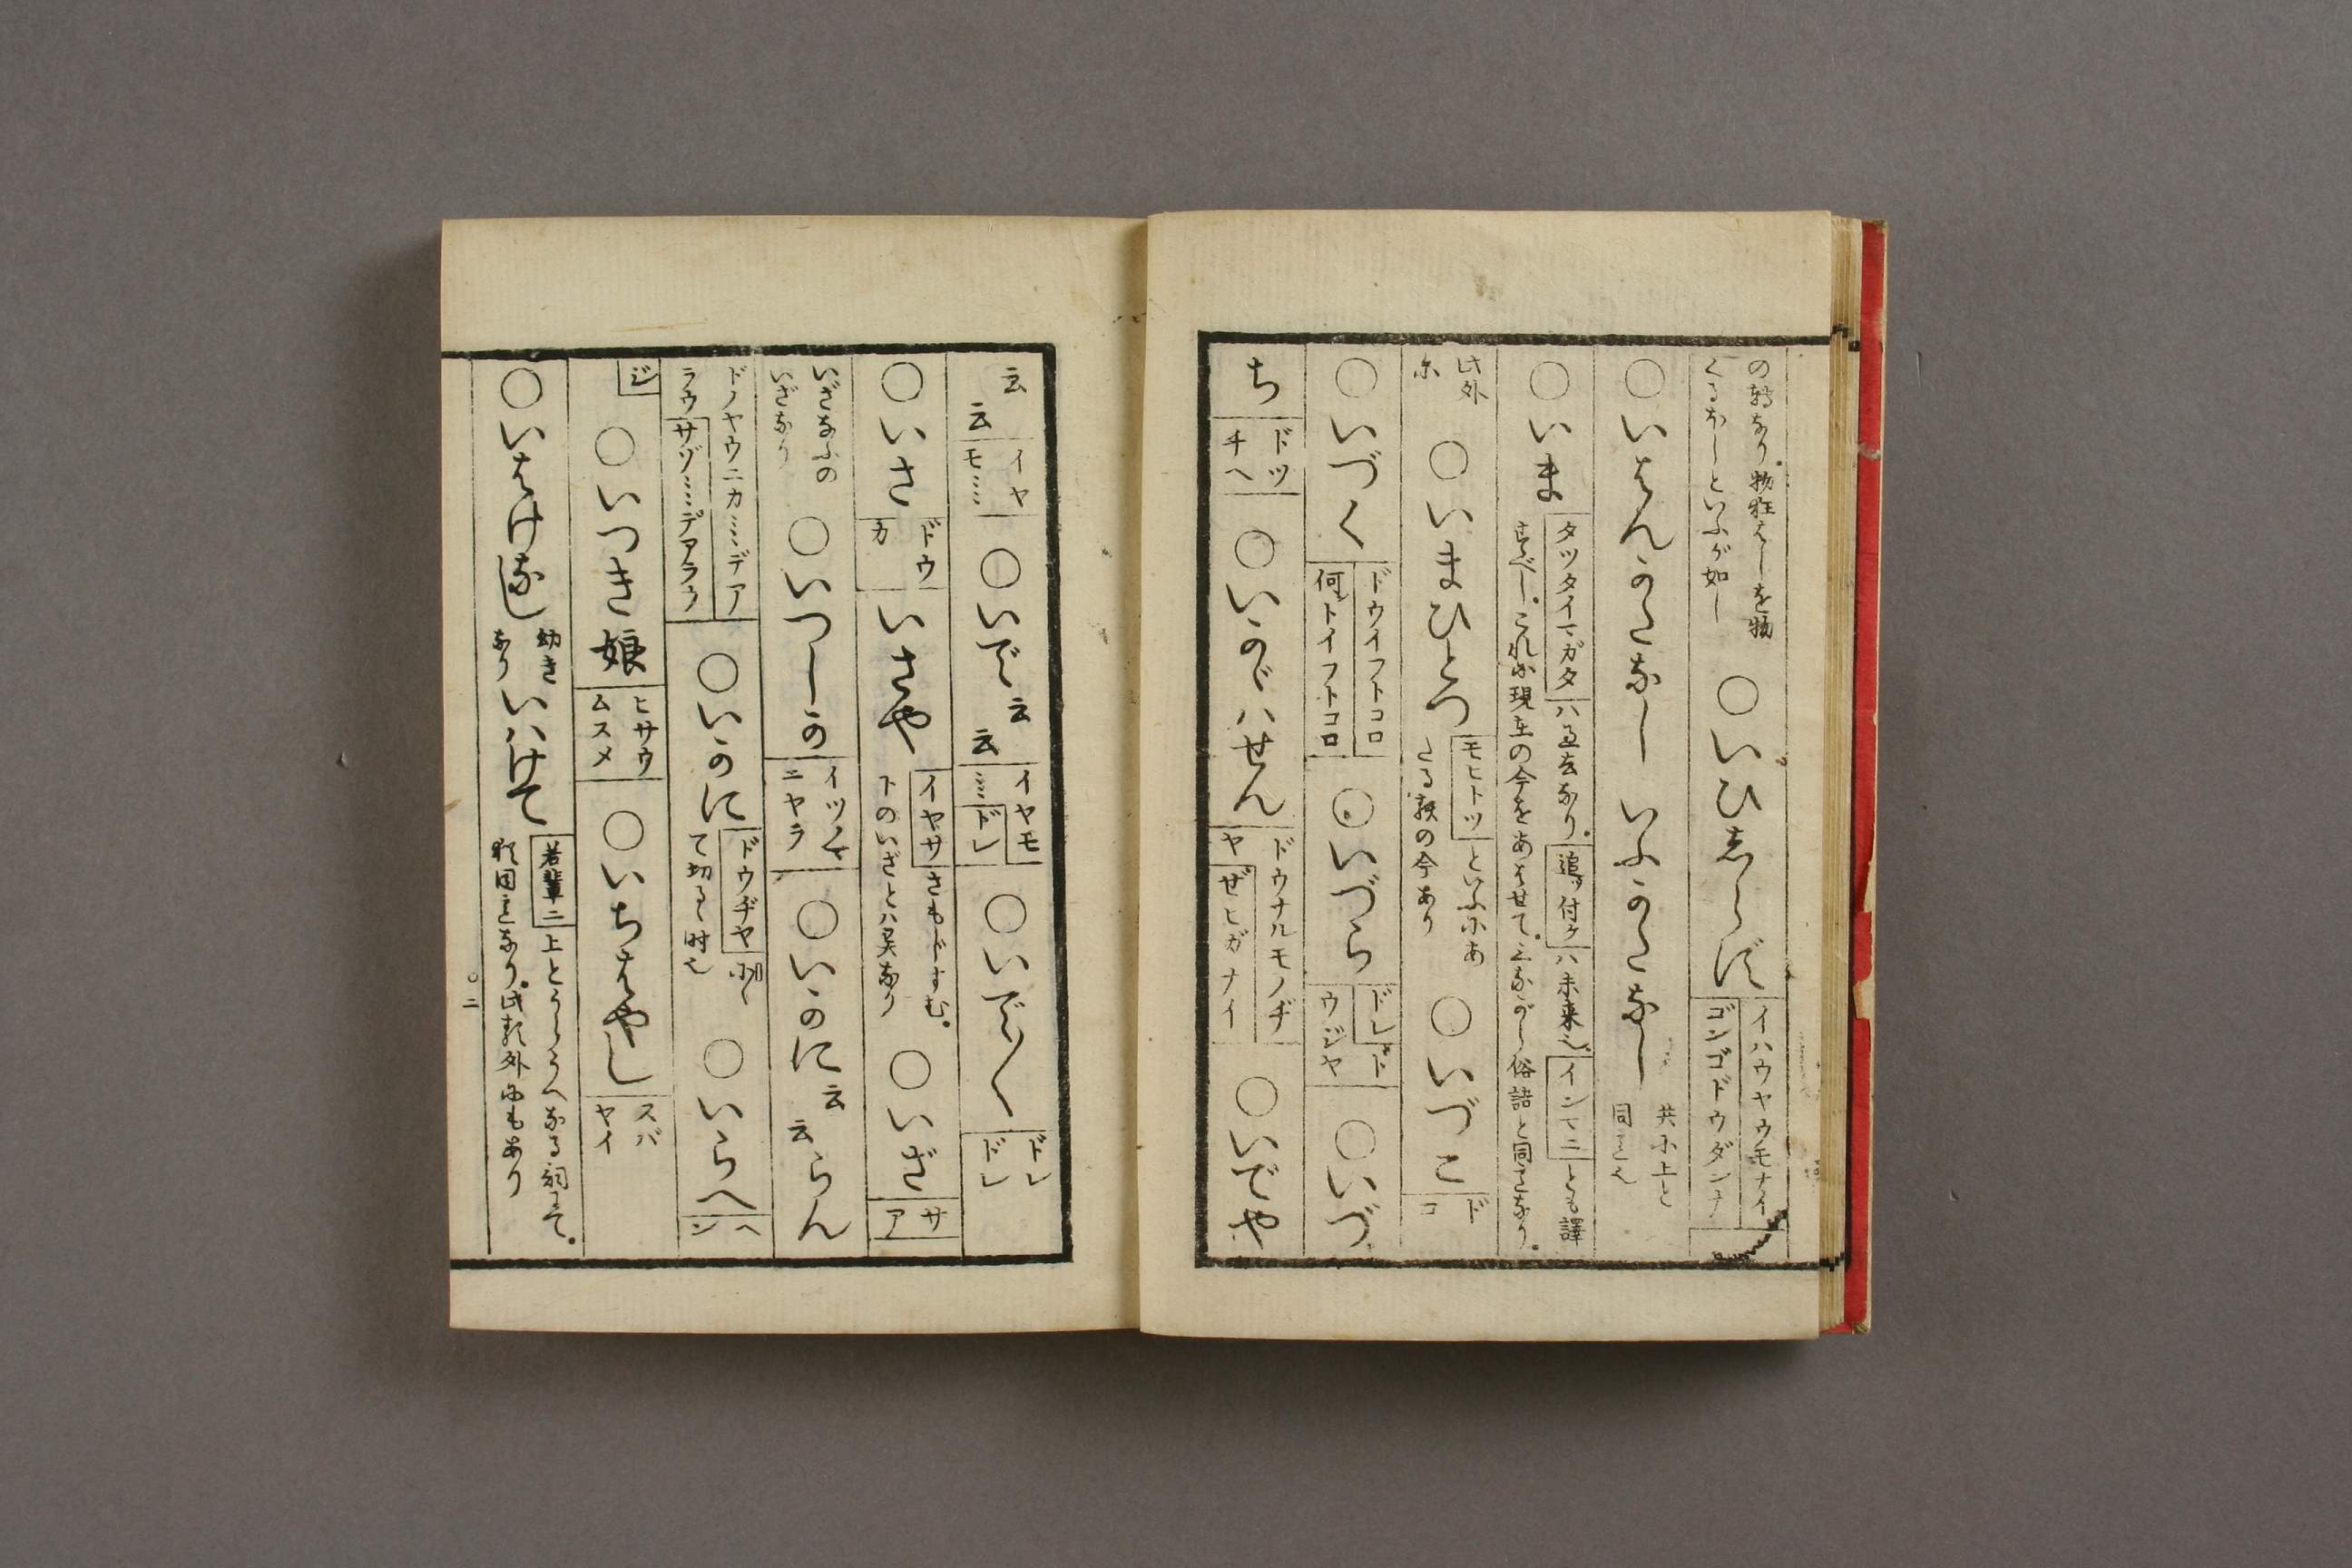 の轉なり。物狂はしを物
くるほしといふが如し
○いひしらず
イハウヤウモナイ
ゴンゴドウダンナ
○いはんかたなし いふかたなし
共に上と
同じ也
○いま
タツタイマガタ ハ過去なり。追ッ付ケ ハ未来也 インマニ とも譯
すべし。これに現在の今をあはせて。三ながら俗語と同じきなり。
此外
尓
○いまひとつ
モヒトツ といふにあ
たる類の今あり
○いづこ
ド
コ
○いづく
ドウイフトコロ
何トイフトコロ
○いづら
ドレ ド
ウジヤ
○いづ
ち
ドツ
チヘ
○いかがハせん
ドウナルモノヂ
ヤ ぜヒガナイ
○いでや
云
云
イヤ
モ…
○いで云云
イヤモ
… ドレ
○いで〱
ドレ
ドレ
○いさ
ドウ
カ
いさや
イヤサ さもドすむ。
下のいざとハ異なり
○いざ
サ
ア
いざなふの
いざなり
○いつしか
イツノマ
ニヤラ
○いかに云云らん
ドノヤウニカ…デア
ラウ サゾ…デアラウ
○いかに
ドウヂヤ
て切るゝ時也
○いらへ
ヘ
ン
ジ
○いつき娘
ヒサウ
ムスメ
○いちはやし
スバ
ヤイ
○いはけなし
幼き
なり
いハけて
若輩ニ 上とうらうへなる詞にて。
躰同じきなり。此類外にもあり
○二